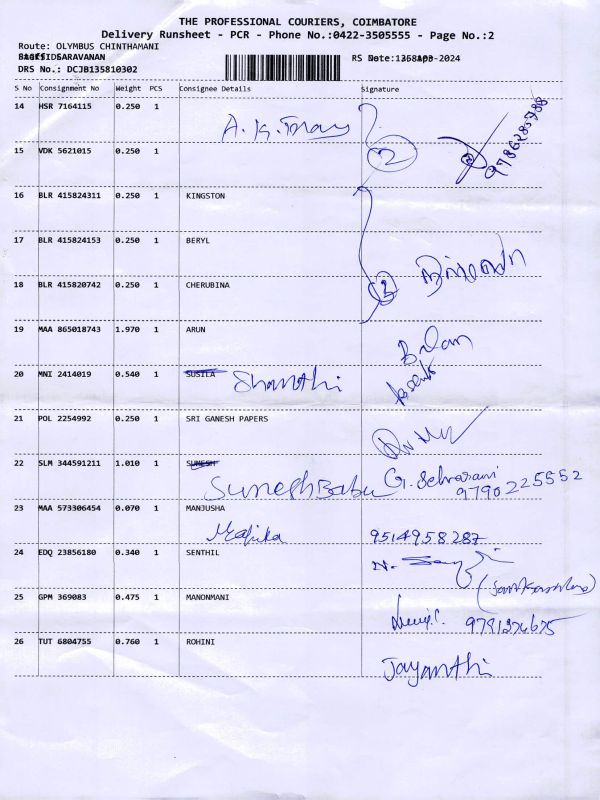 THE PROFESSIONAL COURIERS, COIMBATORE
Delivery Runsheet - PCR - Phone No.:0422-3505555 - Page No.:2
Route: OLYMBUS CHINTHAMANI
SARAVANAN RS Date:
DRS No.: DCJB135810302
S No Consignment No Weight PCS Consignee Details Signature
14 HSR 7164115 0.250 1
15 VDK 5621015 0.250 1 2 9786285788
16 BLR 415824311 0.250 1 KINGSTON
17 BLR 415824153 0.250 1 BERYL
18 BLR 415820742 0.250 1 CHERUBINA
19 MAA 865018743 1.970 1 ARUN
Balan
20 MNI 2414019 0.540 1 SUSILA Shanthi
21 POL 2254992 0.250 1 SRI GANESH PAPERS
22 SLM 344591211 1.010 1 SUMESH
SumeshBabu G. Selvarani
9790225552
23 MAA 573306454 0.070 1 MANJUSHA
9514958287
24 EDQ 23856180 0.340 1 SENTHIL
25 GPM 369083 0.475 1 MANONMANI
9791274675
26 TUT 6804755 0.760 1 ROHINI
Jayanthi